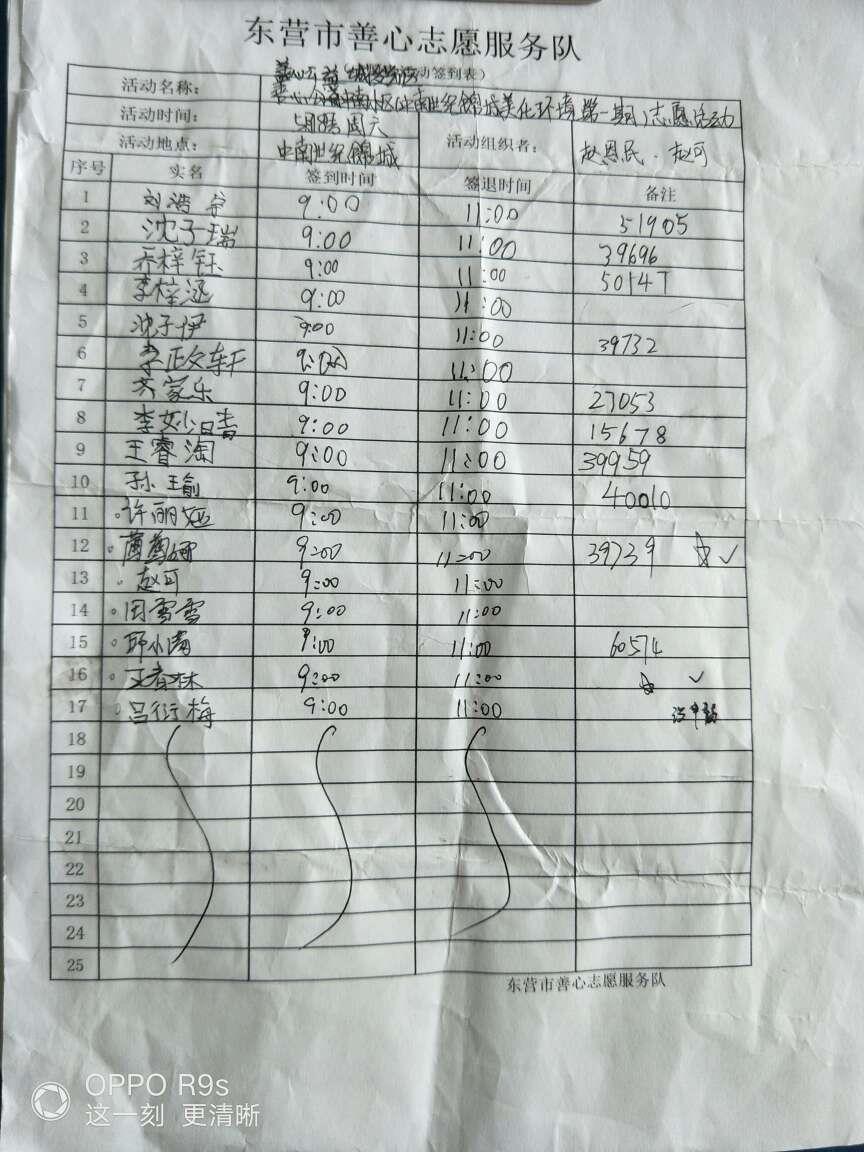 东营市善心志愿服务队
善心公益 动签到表）
活动名称： 善心公益中南小区（中南世纪锦城美化环境第一期）志愿活动
活动时间： 5月8号 周天
活动地点： 中南世纪锦城 活动组织者： 赵恩民、赵可
序号 实名 签到时间 签退时间 备注
1 刘浩宇 9:00 11:00 51905
2 沈子瑞 9:00 11:00 39696
3 乔梓钰 9:00 11:00 50147
4 李梓涵 9:00 11:00
5 沈子伊 9:00 11:00 39732
6 李政轩 9:00 11:00
7 齐家乐 9:00 11:00 27053
8 李妙 9:00 11:00 15678
9 王睿淘 9:00 11:00 39959
10 孙瑜 9:00 11:00 40010
11 许丽娅 9:00 11:00
12 9:00 11:00 39739 ☆ ✓
13 赵可 9:00 11:00
14 田雪雪 9:00 11:00
15 邱小 9:00 11:00 60574
16 王春林 9:00 11:00 ☆ ✓
17 吕衍梅 9:00 11:00
18
19
20
21
22
23
24
25
东营市善心志愿服务队
OPPO R9s
这一刻 更清晰